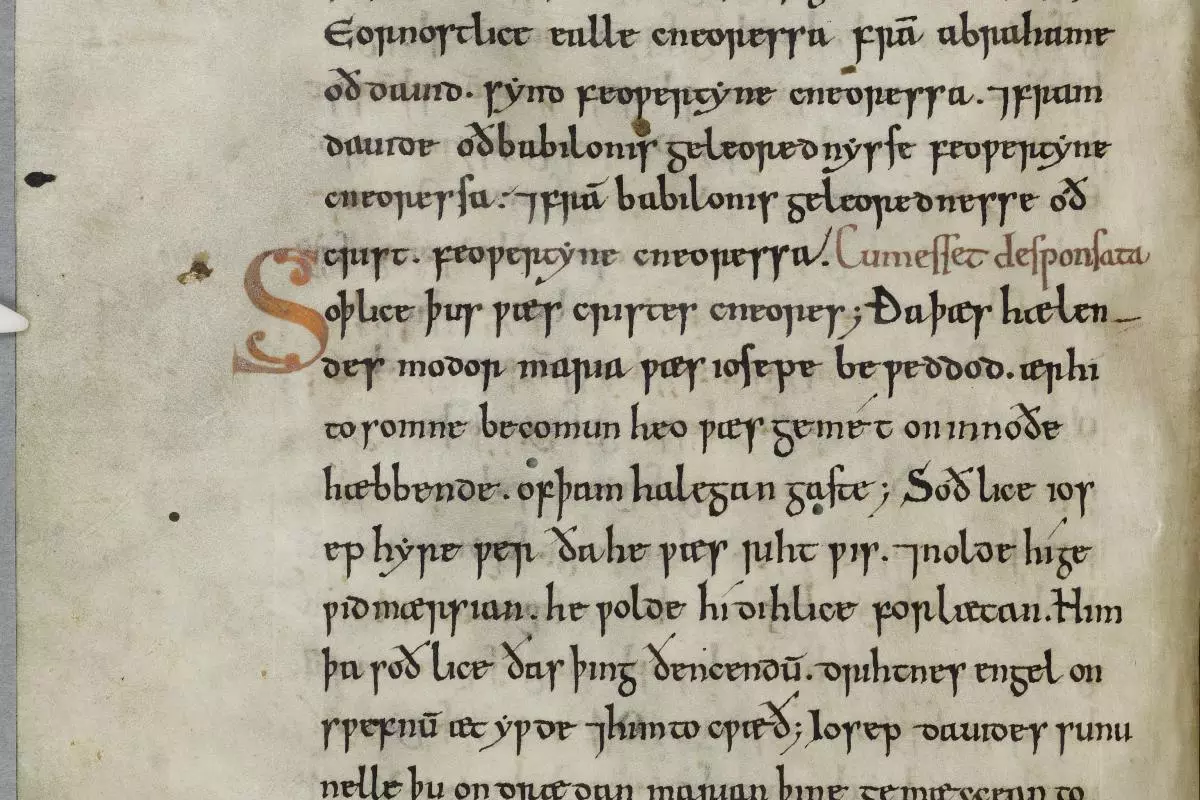 Eornostlice ealle cneoressa frā abrahame
oð dauid. sẏnd feoƿertẏne cneoressa. ⁊fram
dauide oð babilonis geleorednẏsse feoƿertẏne
cneoressa: ⁊frā babilonis geleorednesse oð
crist. feoƿertẏne cneoressa. Cum esset desponsata
Soþlice þus ƿæs cristes cneores; Ða þæs hælen
des modor maria ƿæs iosepe beƿeddod. ær hi
tosomne becomun heo ƿæs gemét on innoðe
hæbbende. of þam halegan gaste; Soðlice ios
ep hẏre ƿer ða he ƿæs riht ƿis. ⁊nolde hí ge
ƿidmærsian. he ƿolde hí dihlice forlætan. Him
þa soðlice ðas þing ðencendū. drihtnes engel on
sƿefnū ætẏƿde ⁊him to cƿæð; Iosep dauides sunu
nelle þu ondrædan marian þine gemæccean to